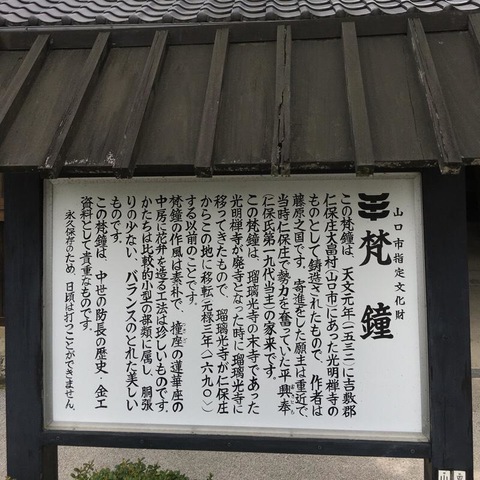 山口市指定文化財
梵鐘
この梵鐘は、天文元年(一五三二)に吉敷郡
仁保庄大畠村(山口市)にあった光明禅寺の
ものとして鋳造されたもので、作者は
藤原之国です。寄進をした願主は重近で、
当時仁保庄で勢力を奮っていた平興奉
(仁保氏第一九代当主)の家来です。
この梵鐘は、瑠璃光寺の末寺であった
光明禅寺が廃寺となった時に瑠璃光寺に
移ってきたもので、瑠璃光寺が仁保庄
からこの地に移転(元禄三年(一六九〇))
する以前のことです。
梵鐘の作風は素朴で、撞座の蓮華座の
中房に花弁を造る工法は珍しいものです。
かたちは比較的小型の部類に属し、胴張
りの少ない、バランスのとれた美しい
ものです。
この梵鐘は、中世の防長の歴史、金工
資料として貴重なものです。
永久保存のため、日頃は打つことができません。
山